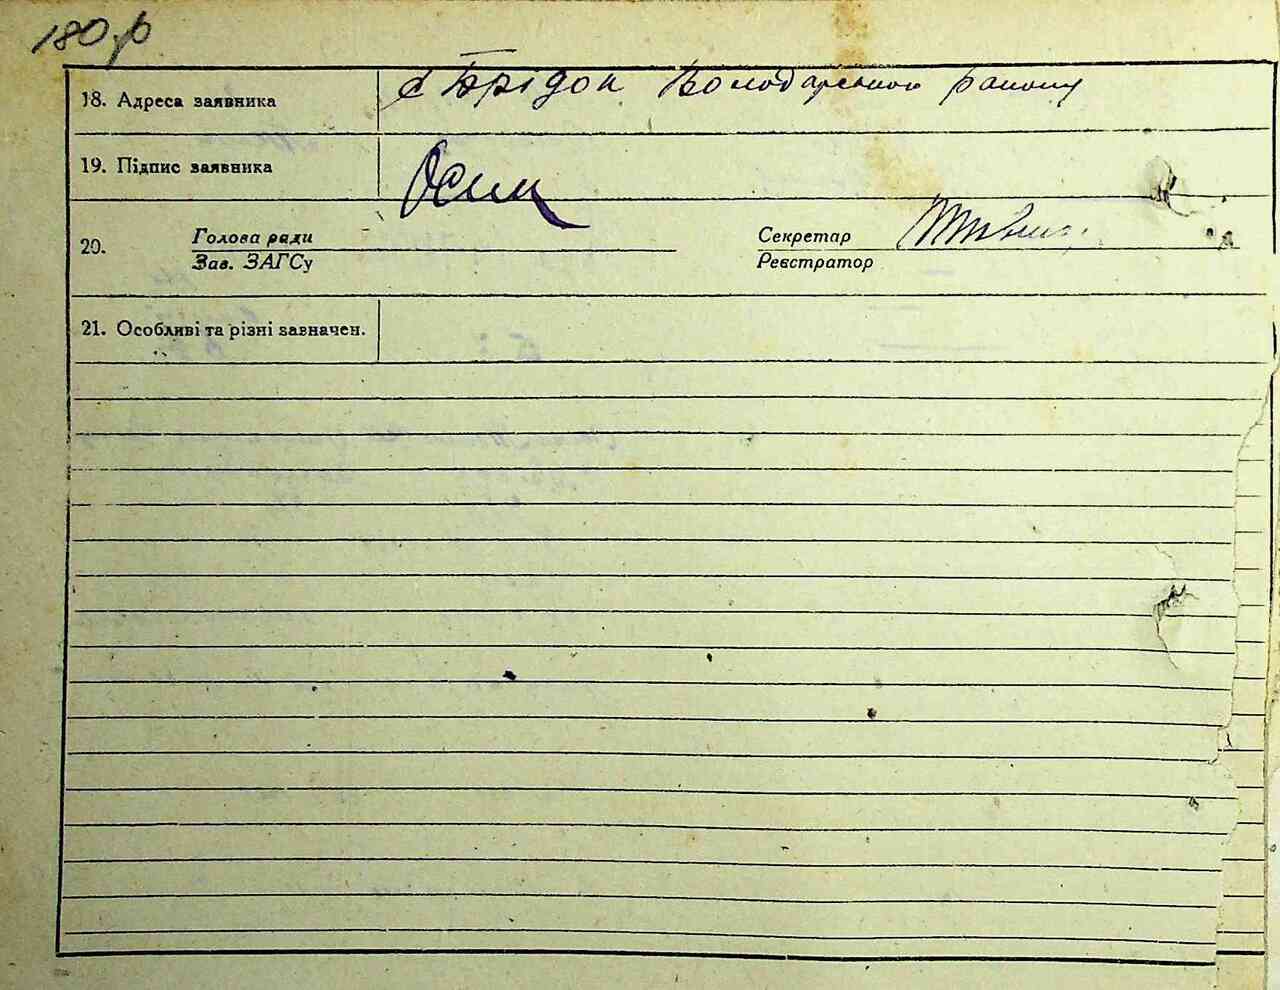 180
18. Адреса заявника с Брідок Володарського району
19. Підпис заявника Осип
20. Голова ради Секретар
Зав. ЗАГСу Реєстратор
21. Особливі та різні зазначен.